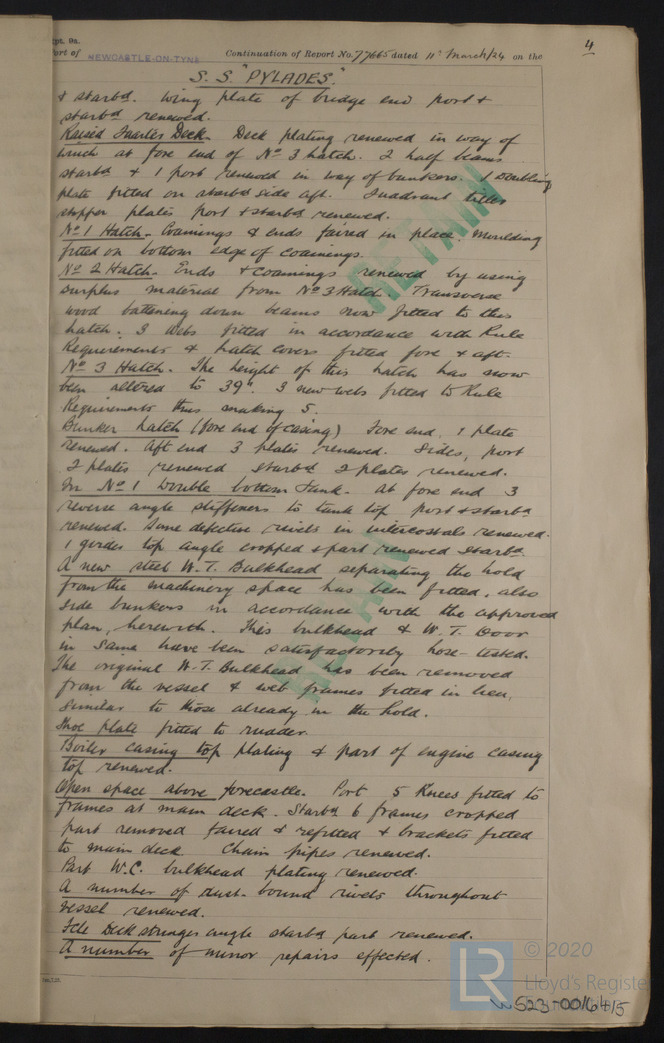 Rpt. 9a.
4
Port of NEWCASTLE-ON-TYNE Continuation of Report No. 77665 dated 11th March/24 on the
S.S. "PYLADES."
& starbd. wing plate of bridge end port &
starbd renewed.
Raised Quarter Deck. Deck plating renewed in way of
winch at fore end of No 3 hatch. 2 half beams
starbd & 1 port renewed in way of bunkers. 1 Doubling
plate fitted on starbd side aft. Quadrant
stopper plates port & starbd renewed.
No 1 Hatch. Coamings & ends faired in place. Moulding
fitted on bottom edge of coamings.
No 2 Hatch. Ends & coamings renewed by using
surplus material from No 3 Hatch. Transverse
wood battening down beams now fitted to this
hatch. 3 webs fitted in accordance with Rule
Requirements & hatch covers fitted fore & aft.
No 3 Hatch. The height of this hatch has now
been altered to 39". 3 new webs fitted to Rule
Requirements thus making 5.
Bunker hatch (fore end of casing) Fore end. 1 plate
renewed. Aft end 3 plates renewed. Sides, port
2 plates renewed starbd 2 plates renewed.
In No 1 Double bottom Tank. At fore end 3
reverse angle stiffeners to tank top port & starbd
renewed. Some defective rivets in intercostals renewed.
1 girder top angle cropped & part renewed starbd.
A new steel W.T. Bulkhead separating the hold
from the machinery space has been fitted, also
side bunkers in accordance with the approved
plan, herewith. This bulkhead & W.T. Door
in same have been satisfactorily hose-tested.
The original W.T. Bulkhead has been removed
from the vessel & web frames fitted in lieu,
similar to those already in the hold.
Shoe plate fitted to rudder.
Boiler casing top plating & part of engine casing
top renewed.
Open space above forecastle. Port 5 Knees fitted to
frames at main deck. Starbd 6 frames cropped
part removed faired & refitted & brackets fitted
to main deck. Chain pipes renewed.
Part W.C. bulkhead plating renewed.
A number of rust-bound rivets throughout
vessel renewed.
Fcle Deck stringer angle starbd part renewed.
A number of minor repairs effected.
RETAIN
RETAIN
LR
© 2020
Lloyd's Register
W523-0016415